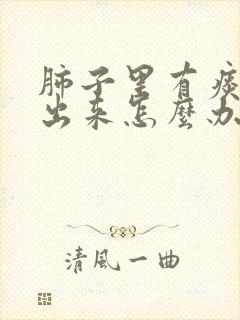 肺子里有痰
出来怎麼办
清風一曲